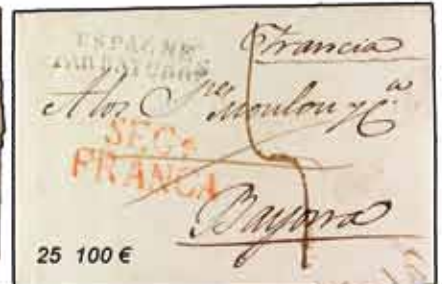 ESPAGNE
PAR BAYONNE
Francia
A los Sres Moulon y Ca
SEGa
FRANCA
Bayona
25 100 €